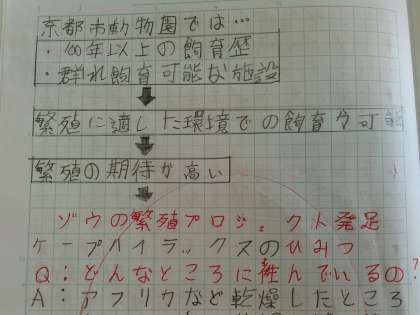 京都市動物園では…
・100年以上の飼育歴
・群れ飼育可能な施設
繁殖に適した環境での飼育が可能
繁殖の期待が高い
ゾウの繁殖プロジェクト発足
ケープハイラックスのひみつ
Q:どんなところに住んでいるの?
A:アフリカなど乾燥したところ